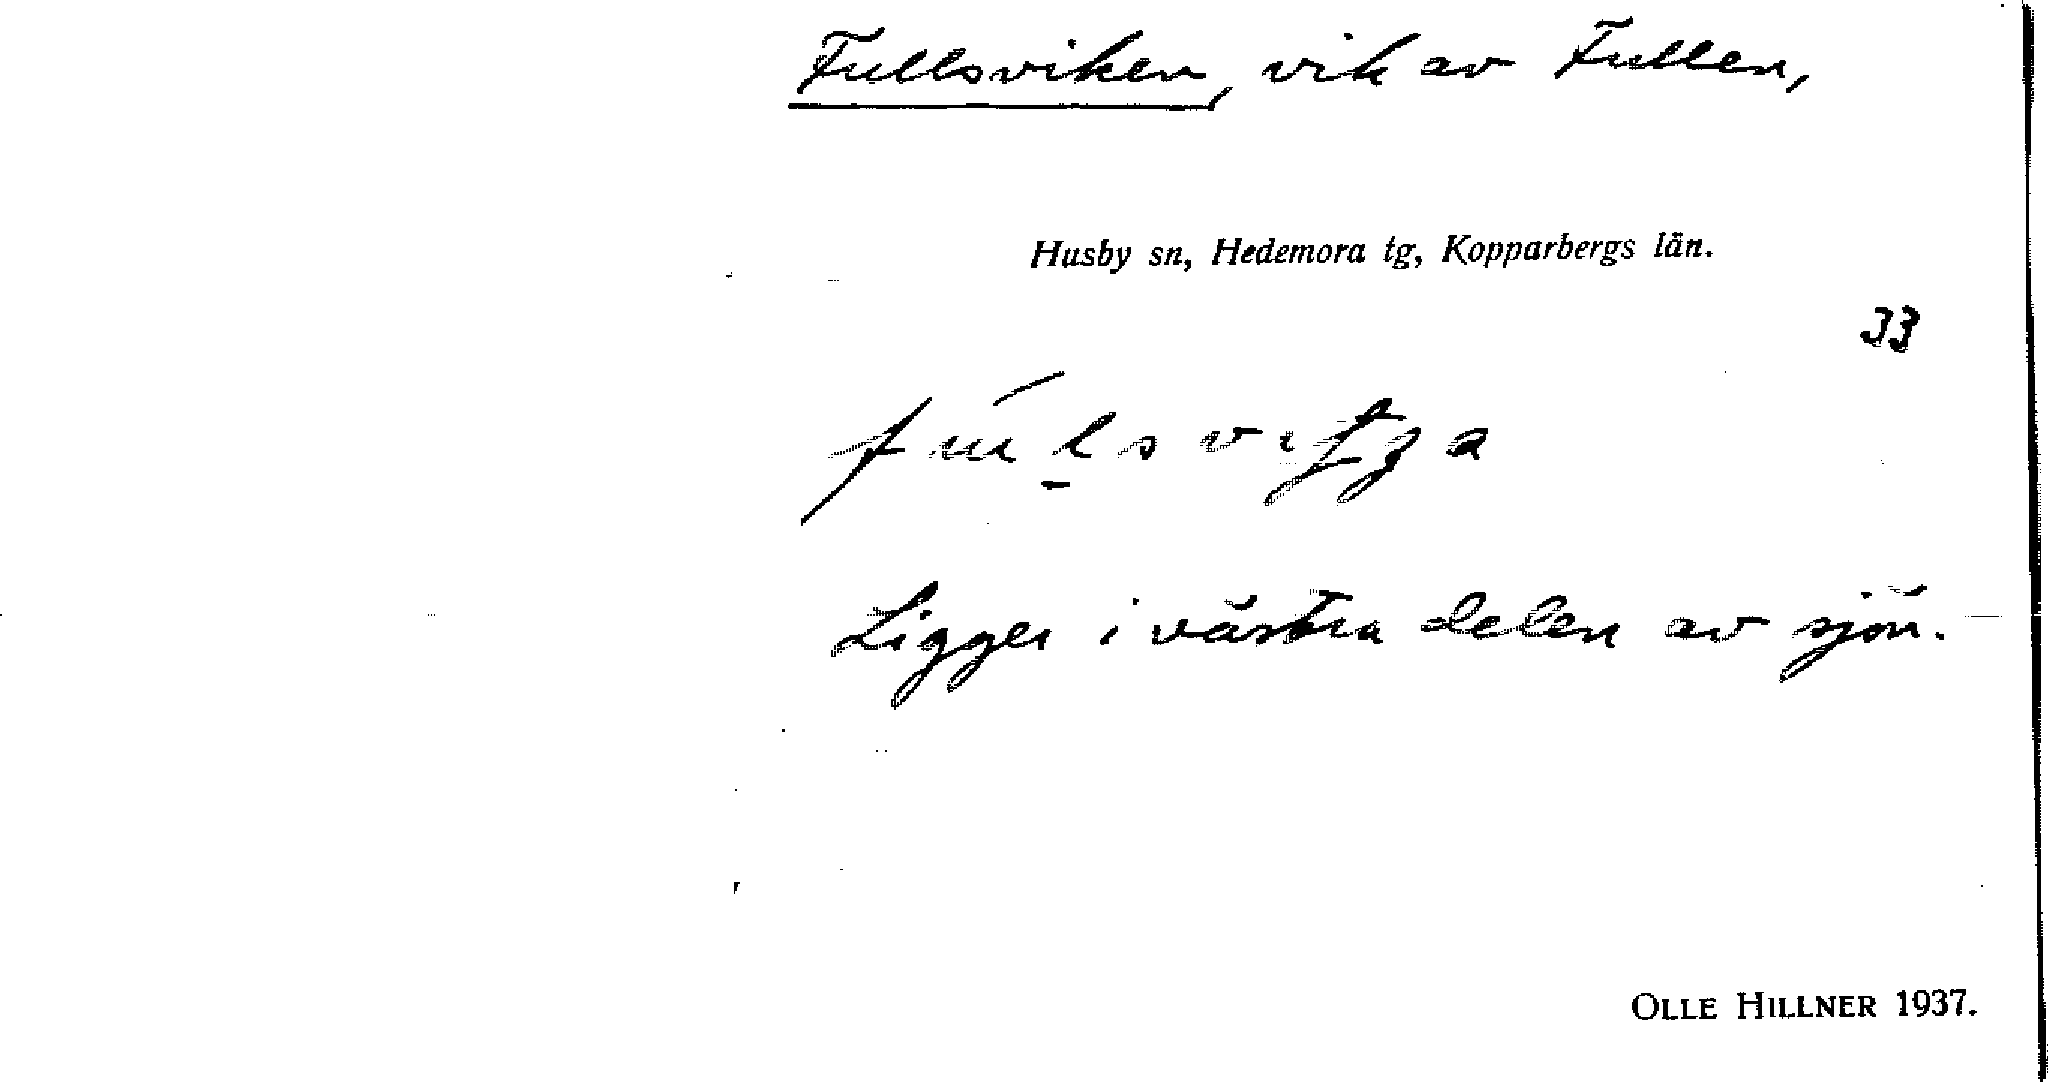 Fullsviken, vik av Fullen,
Husby sn, Hedemora tg, Kopparbergs län.
33
Ligger i västra delen av sjön.
OLLE HILLNER 1937.